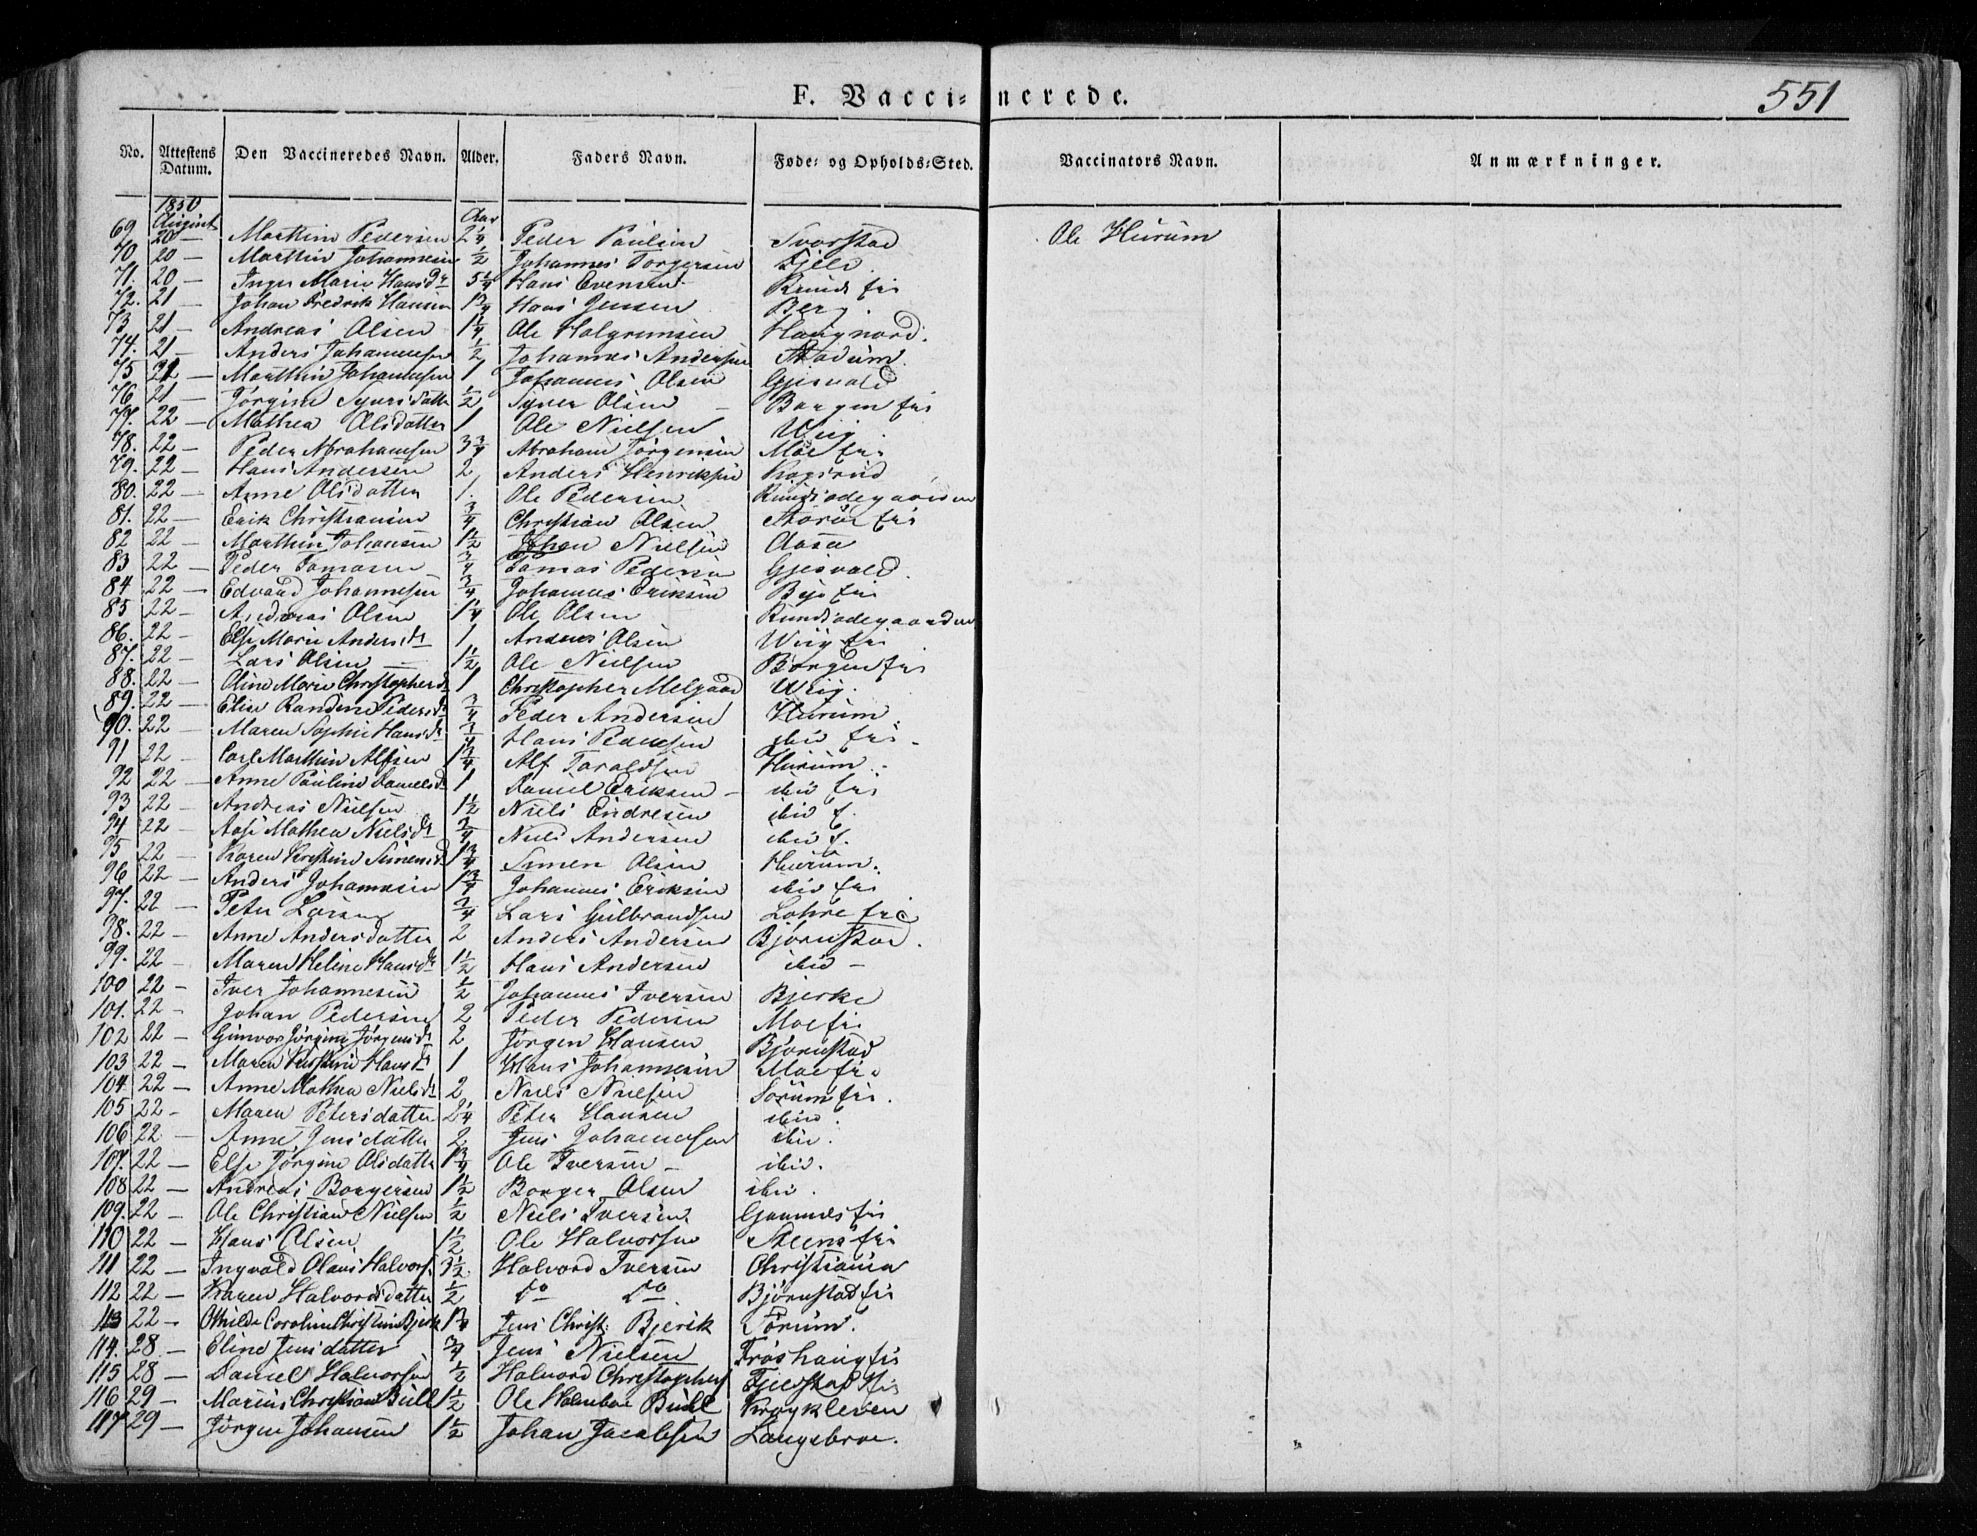 551
F. Vaccinerede.
No. Attestens Datum. Den Vaccineredes Navn. Alder. Faders Navn. Føde- og Opholds-Sted. Vaccinators Navn. Anmærkninger.
1850 August Aar
69 20 — Marthin Pedersen 2 1/4 Peder Paulsen Svarstad Ole Hurum
70 20 — Marthin Johannesen 1/2 Johannes Torgersen Fjeld
71. 20 — Inger Marie Hansdr 5 1/4 Hans Evensen Rund fri
72. 21 — Johan Fredrik Hansen 1 3/4 Hans Jensen Berg
73 21 — Andreas Olsen 1 1/4 Ole Halgrimsen Haug nord.
74. 21 — Anders Johannesen 1/2 Johannes Andersen Stadum
75 21 — Marthin Johannesen 1 Johannes Olsen Gjesvald
76 21 — Jørgine Syversdatter 1/2 Syver Olsen — Borgen fri
77. 22 — Mathea Olsdatter 1 Ole Nielsen Wiig.
78. 22 — Peder Abrahamsen 3 3/4 Abraham Jørgensen Moe fri
79. 22 — Hans Andersen 2 Anders Henriksen Rogsrud
80. 22 — Anne Olsdatter 1. Ole Pedersen Rundsødegaarden
81. 22 — Erik Christiansen 3/4 Christian Olsen Storøe fri
82 22 — Marthin Johansen 1 1/2 Johan Nielsen Aasa
83 22 — Peder Tomasen 3/4 Tomas Pedersen Gjesvald.
84 22 — Edvard Johannesen 3/4 Johannes Eriksen Bye fri
85 22 — Andreas Olsen 1 1/4 Ole Olsen Rundsødegaarden
86. 22 — Else Marie Andersdr 1 Anders Olsen Wiig fri
87. 22 — Lars Olsen — 1 1/2 Ole Nielsen Borgen fri
88. 22 — Oline Marie Christophersd 1 Christopher Melgaard Wiig.
89. 22 — Elise Randine Pedersdr 3/4 Peder Andersen Hurum.
90. 22 — Maren Sophie Hansdr 3/4 Hans Pedersen ibid fri —
91 22 — Carl Marthin Alfsen 1 3/4 Alf Taraldsen Hurum.
92 22 — Anne Pauline Danielsd 1 Daniel Eriksen — ibid fri
93 22 — Andreas Nielsen 1 1/2 Niels Endresen ibid f.
94 22 — Aase Mathea Nielsdr 3/4 Niels Andersen ibid f.
95 22 — Karen Kristine Simensd 1 3/4 Simen Olsen Hurum.
96 22 — Anders Johannesen 1 3/4 Johannes Eriksen ibid fri
97. 22 — Peter Larsen 3/4 Lars Gulbrandsen Lohre fri
98. 22 — Anne Andersdatter 2 Anders Andersen Bjørnstad.
99. 22 — Maren Heline Hansdr 1 1/2 Hans Andersen ibid —
100 22 — Iver Johannesen 1/2 Johannes Iversen Bjerke
101. 22 — Johan Pedersen 2 Peder Pedersen Moe fri
102 22 — Gunvor Jørgine Jørgensdr 2 Jørgen Hansen Bjørnstad
103 22 — Maren Kirstine Hansdr 1 Hans Johannesen Moe fri
104. 22 — Anne Mathea Nielsdr 2 Niels Nielsen Sørum fri.
105 22 — Maren Petersdatter 2 1/4 Peter Hansen ibid.
106 22 — Anne Jensdatter 2 Jens Johannesen ibid.
107. 22 — Else Jørgine Olsdatter 1 3/4 Ole Iversen — ibid.
108 22 — Andreas Borgersen 1 1/2 Borger Olsen ibid.
109. 22 — Ole Christian Nielsen 1/2 Niels Iversen fri
110 22 — Hans Olsen 1 1/2 Ole Halvorsen Steens fri
111 22 — Ingvald Olaus Halvors. 3 1/2 Halvord Iversen Christiania
112 22 — Karen Halvordsdatter 1/2 Do Do Bjørnstad fri
113 22 — Othilde Caroline Christine Bjerk 1 3/4 Jens Christ: Bjerik Sørum.
114. 28 — Eline Jensdatter 3/4 Jens Nielsen Frøshaug fri
115 28 — Daniel Halvorsen 1/2 Halvord Christophers Fjeldstad fri
116 29 — Marius Christian Bull 1 1/2 Ole Holmboe Bull Krogkleven
117 29 — Jørgen Johansen 1 1/2 Johan Jacobsen Langebroe.